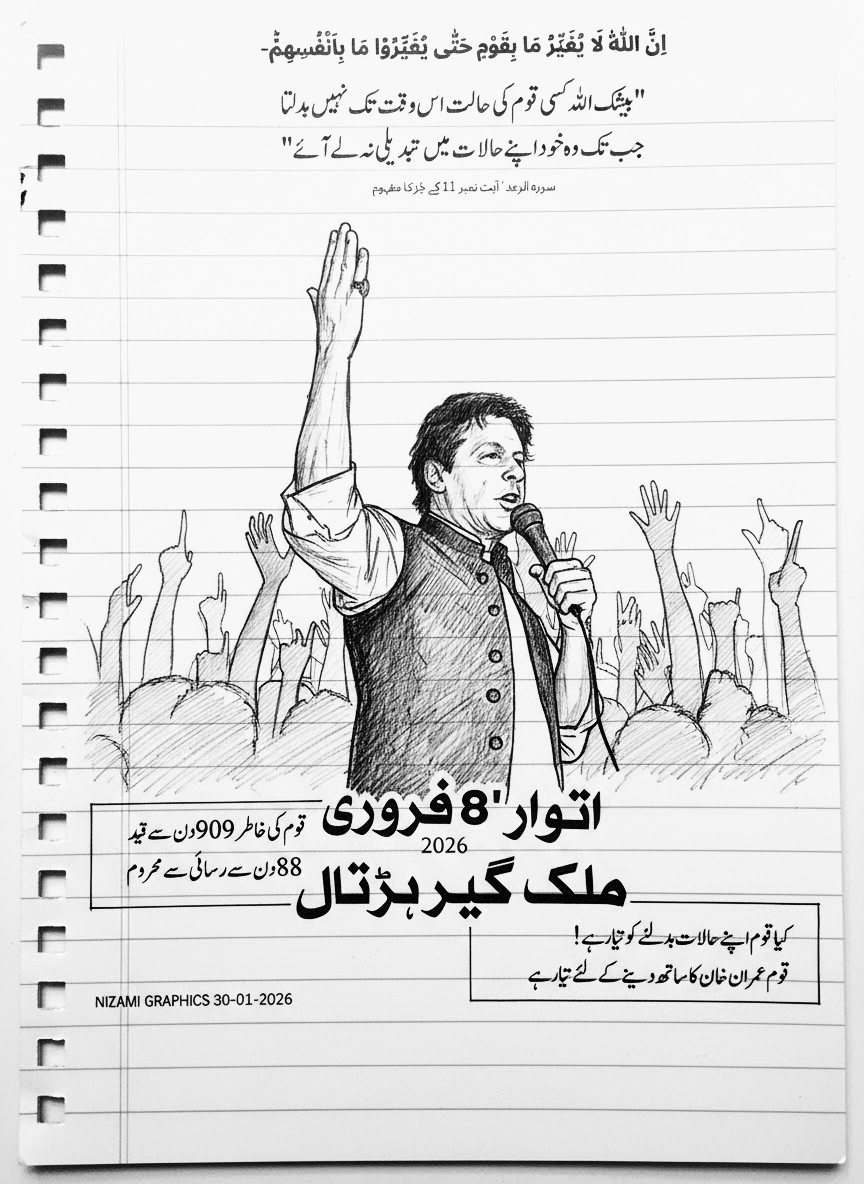 اِنَّ اللّٰهَ لَا يُغَيِّرُ مَا بِقَوْمٍ حَتّٰى يُغَيِّرُوْا مَا بِاَنْفُسِهِمْؕ-
"بیشک اللہ کسی قوم کی حالت اس وقت تک نہیں بدلتا
جب تک وہ خود اپنے حالات میں تبدیلی نہ لے آئے"
سورہ الرعد ' آیت نمبر 11 کے جُز کا مفہوم
اتوار '8 فروری
2026
ملک گیر ہڑتال
قوم کی خاطر 909 دن سے قید
88 دن سے رسائی سے محروم
کیا قوم اپنے حالات بدلنے کو تیار ہے!
قوم عمران خان کا ساتھ دینے کے لئے تیار ہے
NIZAMI GRAPHICS 30-01-2026